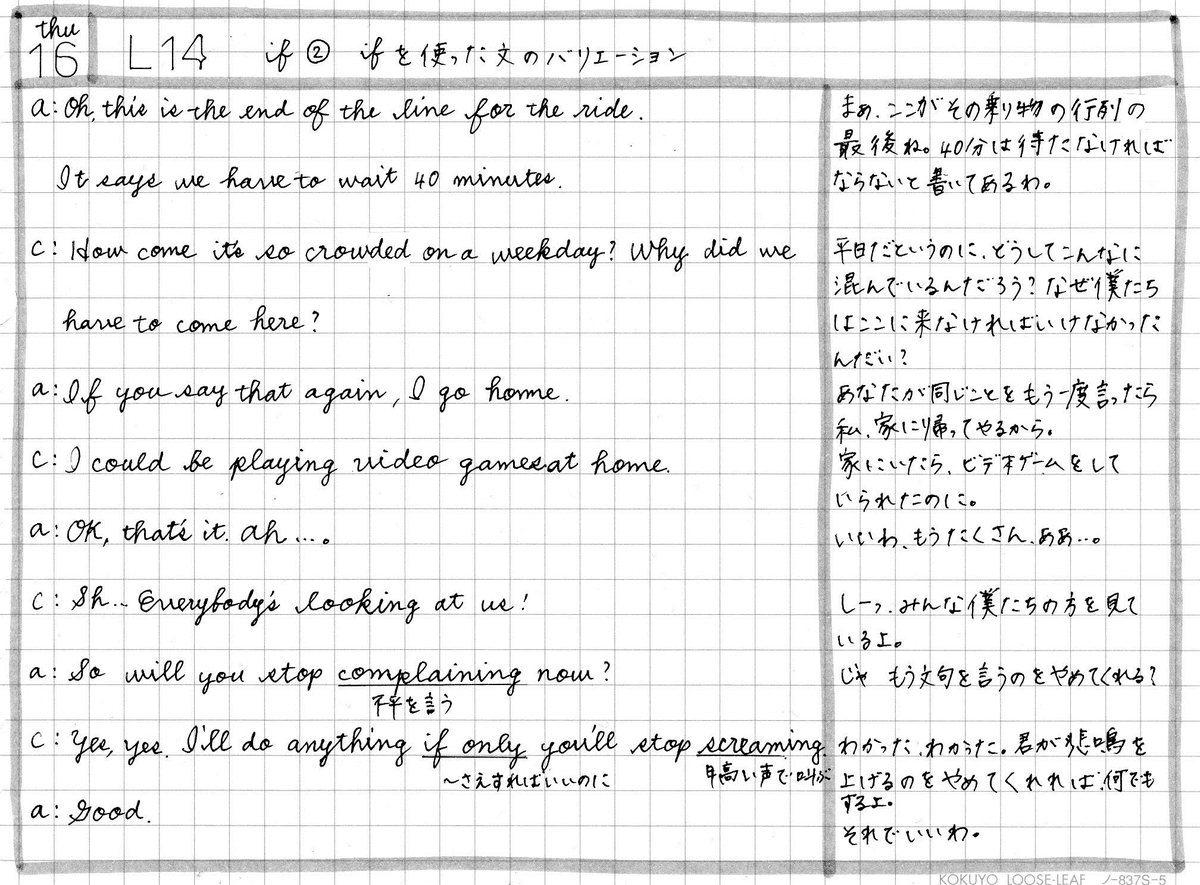 thu
16 L14 if ② ifを使った文のバリエーション
a: Oh, this is the end of the line for the ride.
It says we have to wait 40 minutes.
c: How come it's so crowded on a weekday? Why did we
have to come here?
a: If you say that again, I go home.
c: I could be playing video games at home.
a: OK, that's it. ah....。
c: Sh... Everybody's looking at us!
a: So will you stop complaining now?
不平を言う
c: Yes, yes. I'll do anything if only you'll stop screaming.
〜さえすればいいのに
甲高い声で叫ぶ
a: Good.
まぁ、ここがその乗り物の行列の
最後ね。40分は待たなければ
ならないと書いてあるわ。
平日だというのに、どうしてこんなに
混んでいるんだろう?なぜ僕たち
はここに来なければいけなかった
んだい?
あなたが同じことをもう一度言ったら
私、家に帰ってやるから。
家にいたら、ビデオゲームをして
いられたのに。
いいわ、もうたくさん、ああ…。
しーっ、みんな僕たちの方を見て
いるよ。
じゃ もう文句を言うのをやめてくれる?
わかった、わかった。君が悲鳴を
上げるのをやめてくれれば、何でも
するよ。
それでいいわ。
KOKUYO LOOSE-LEAF ノ-837S-5